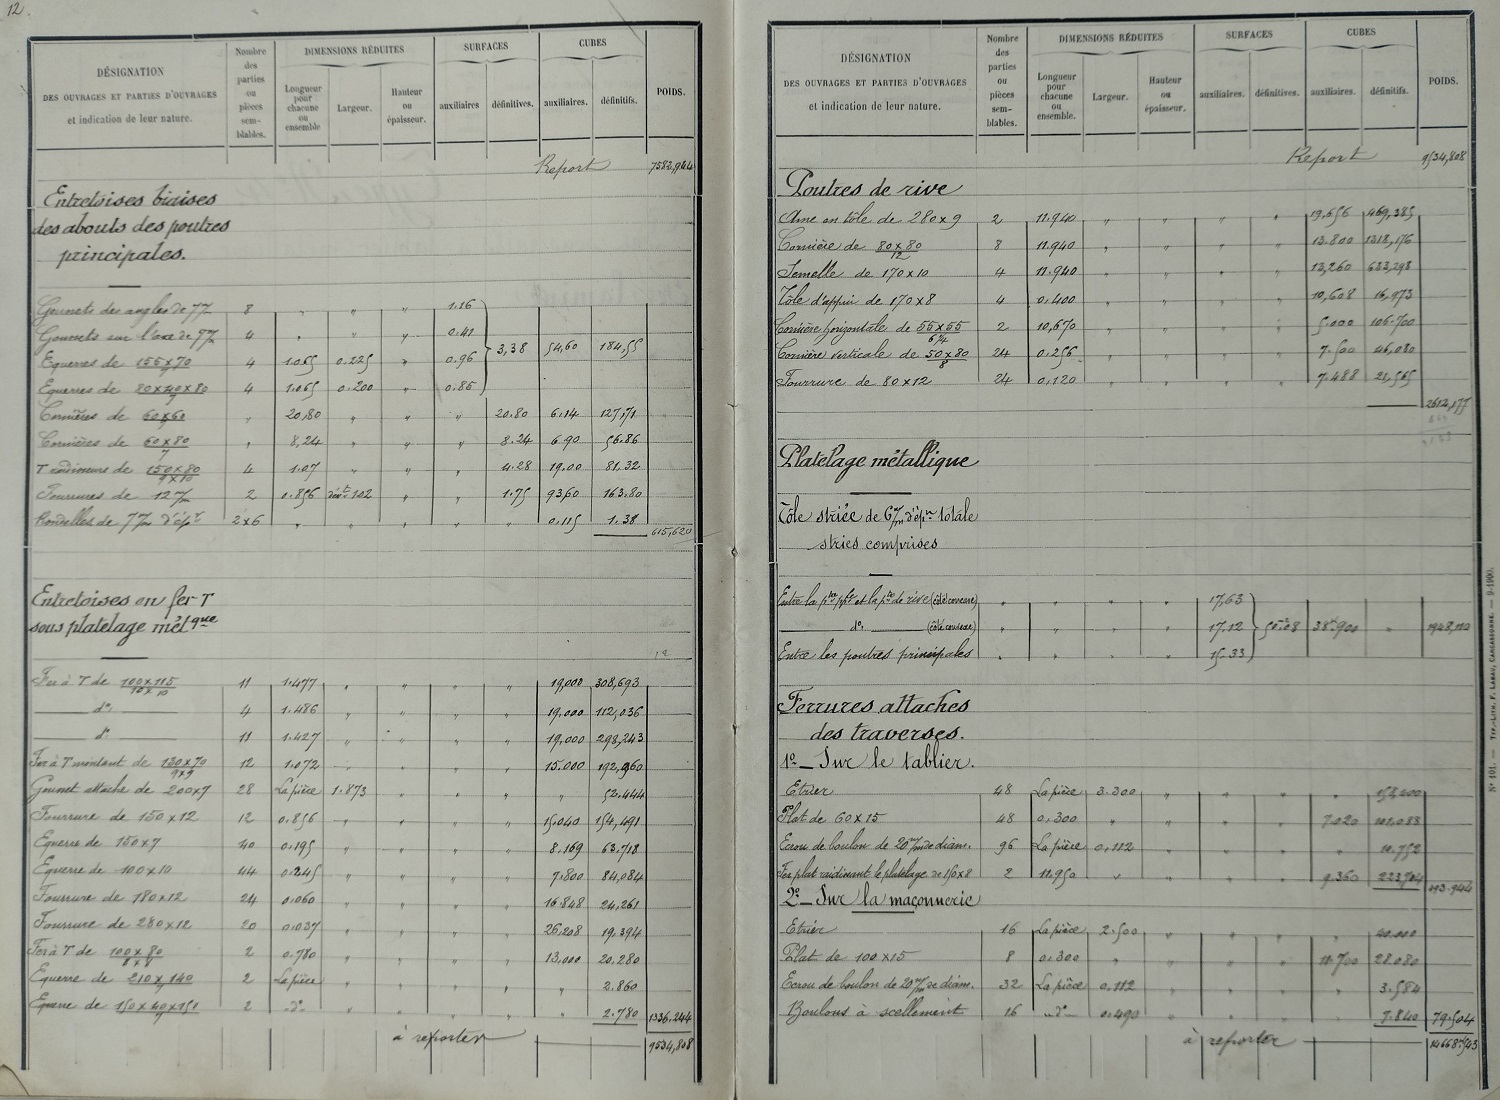 12
DÉSIGNATION
DES OUVRAGES ET PARTIES D'OUVRAGES
et indication de leur nature.
Nombre des parties ou pièces sem-blables.
DIMENSIONS RÉDUITES
Longueur pour chacune ou ensemble
Largeur.
Hauteur ou épaisseur.
SURFACES
auxiliaires
définitives.
CUBES
auxiliaires.
définitifs.
POIDS.
Report 7582,944
Entretoises biaises
des abouts des poutres
principales.
Goussets des angles de 7 8 " " " 1.16
Goussets sur l'axe de 7 4 " " " 0.41
3,38 54,60 184,55
Equerres de 155x70 4 1.065 0.225 " 0.96
Equerres de 80x40x80 4 1.065 0.200 " 0.85
Cornières de 60x60 " 20,80 " " " 20.80 6.14 127,71
Cornières de 60x80/7 " 8,24 " " " 8.24 6.90 56.86
T raidisseurs de 150x80/9x10 4 1.07 " " " 4.28 19,00 81.32
Fourrures de 12 2 0.856 1.02 " " 1.75 93,60 163.80
Rondelles de 7 m/m d'épr 2x6 " " " " " 0.115 1.38
615,620
Entretoises en fer T
sous platelage métque
Fer à T de 100x115/10x10 11 1.477 " " " " 19,000 308,693
do. 4 1.486 " " " " 19.000 112,036
do 11 1.427 " " " " 19,000 298,243
Fer à T montant de 130x70/9x9 12 1.072 " " " " 15.000 192,960
Gousset attache de 200x7 28 La pièce 1.873 " " " " 52.444
Fourrure de 150x12 12 0.856 " " " " 15.040 154,491
Equerre de 150x7 40 0.195 " " " " 8.169 63.718
Equerre de 100x10 44 0.245 " " " " 7.800 84,084
Fourrure de 180x12 24 0.060 " " " " 16.848 24,261
Fourrure de 280x12 20 0.037 " " " " 26,208 19.394
Fer à T de 100x80/8x8 2 0.780 " " " " 13,000 20,280
Equerre de 210x140 2 La pièce " " " " " 2.860
Equerre de 150x40x151 2 do " " " " " 2.780 1336.244
à reporter 9534,808
DÉSIGNATION
DES OUVRAGES ET PARTIES D'OUVRAGES
et indication de leur nature.
Nombre des parties ou pièces sem-blables.
DIMENSIONS RÉDUITES
Longueur pour chacune ou ensemble.
Largeur.
Hauteur ou épaisseur.
SURFACES
auxiliaires.
définitives.
CUBES
auxiliaires.
définitifs.
POIDS.
Report 9534,808
Poutres de rive
Ame en tôle de 280x9 2 11.940 " " " " 19,656 469,385
Cornière de 80x80/12 8 11.940 " " " " 13.800 1318,176
Semelle de 170x10 4 11.940 " " " " 13,260 633,298
Tôle d'appui de 170x8 4 0.400 " " " " 10,608 16,973
Cornière horizontale de 55x55/6½ 2 10,670 " " " " 5.000 106.700
Cornière verticale de 50x80/8 24 0.256 " " " " 7.500 46,080
Fourrure de 80x12 24 0.120 " " " " 7.488 21,565
2612,177
Platelage métallique
Tôle striée de 6 m/m d'épr totale
stries comprises
Entre la ptre pple et la ptre de rive (côté concave) " " " " 17,63
do. (côté convexe) " " " " 17.12 50.08 38.900 " 1948,110
Entre les poutres principales " " " " 15.33
Ferrures attaches
des traverses.
1o _ Sur le tablier.
Etrier 48 La pièce 3.300 " " " " 158,400
Plat de 60x15 48 0.300 " " " " 7.020 101.088
Ecrou de boulon de 20 m/m de diam. 96 La pièce 0.112 " " " " 10.752
Fer plat raidissant le platelage de 150x8 2 11.950 " " " " 9.360 223,704 493.944
2o _ Sur la maçonnerie
Etrier 16 La pièce 2.500 " " " " 40.000
Plat de 100x15 8 0.300 " " " " 11.700 28.080
Ecrou de boulon de 20 m/m de diam. 32 La pièce 0.112 " " " " 3.584
Boulons à scellement 16 do 0.490 " " " " 7.840 79.504
à reporter 14668.543
No 101. — TYP.-LITH. F. LABAU, CARCASSONNE. — 9-1900.